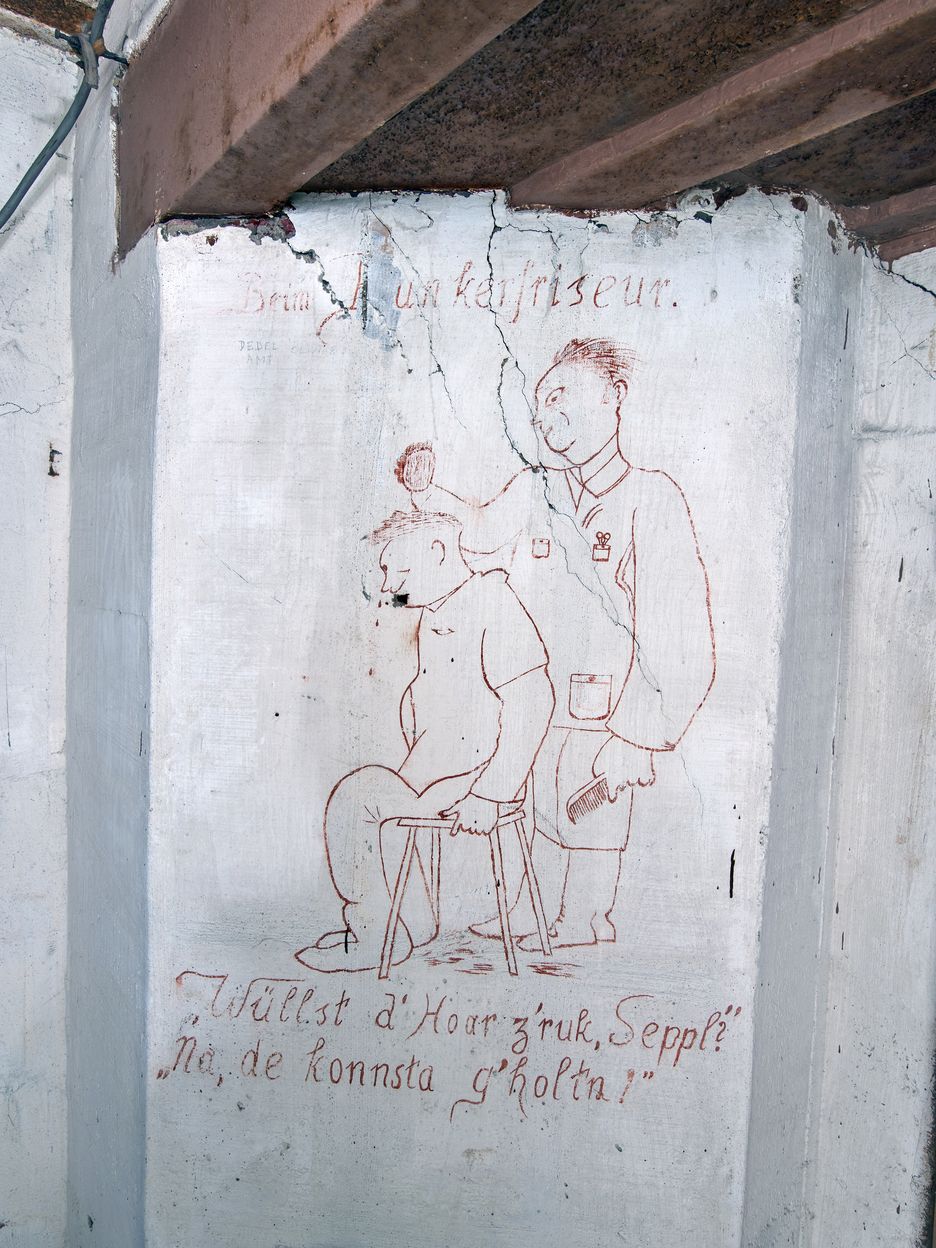 Beim Bunkerfriseur.
DEDEL
AMT
„Wüllst d' Hoar z'ruk, Seppl?"
„Na, de konnsta g'holtn!"